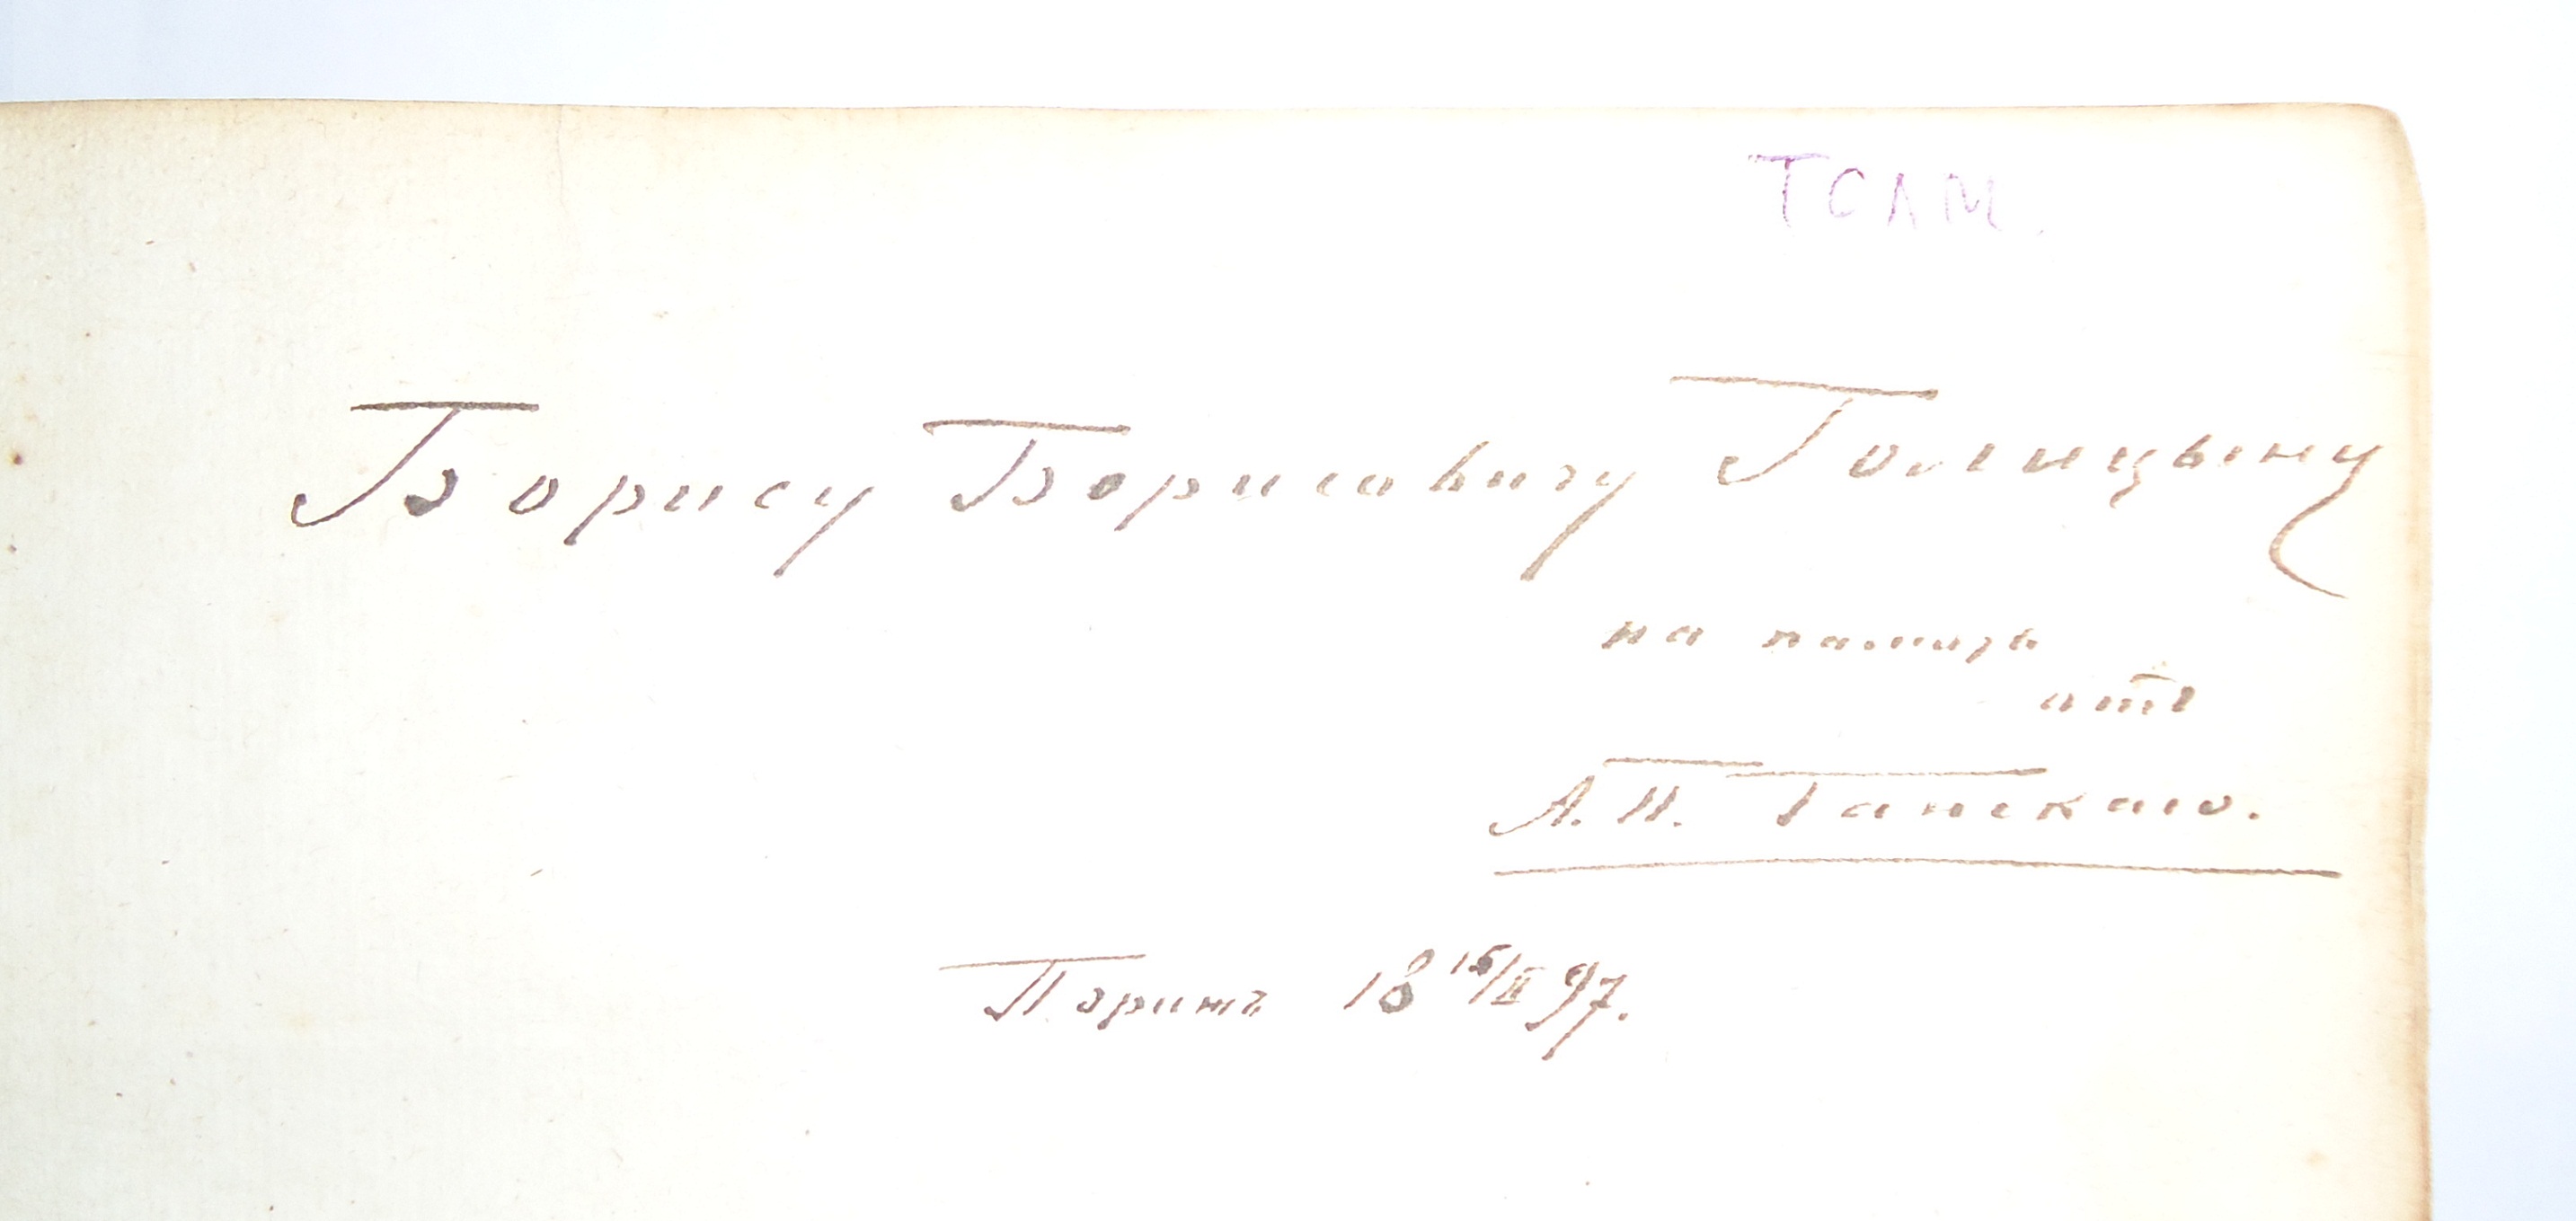 ТСЛМ.
Борису Борисовичу Голицыну
на память
отъ
А. П. Ганскаго.
Парижъ 18 15/II 97.